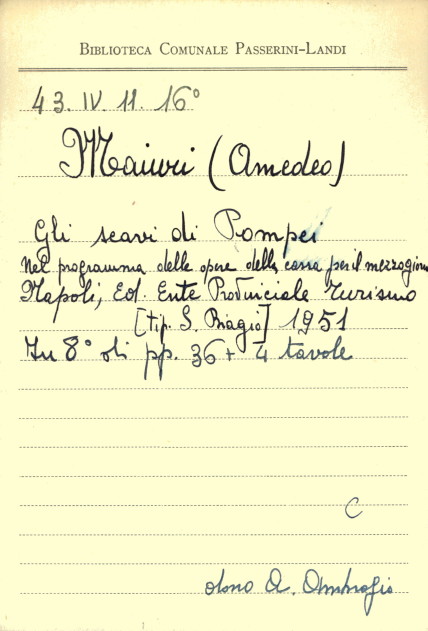 BIBLIOTECA COMUNALE PASSERINI-LANDI
43. IV. 11. 16°
Maiuri (Amedeo)
Gli scavi di Pompei
Nel programma delle opere della cassa per il mezzogiorn
Napoli, Ed. Ente Provinciale Turismo
[tip. S. Biagio] 1951
In 8° di pp. 36 + 4 tavole
C
dono A. Ambrogio